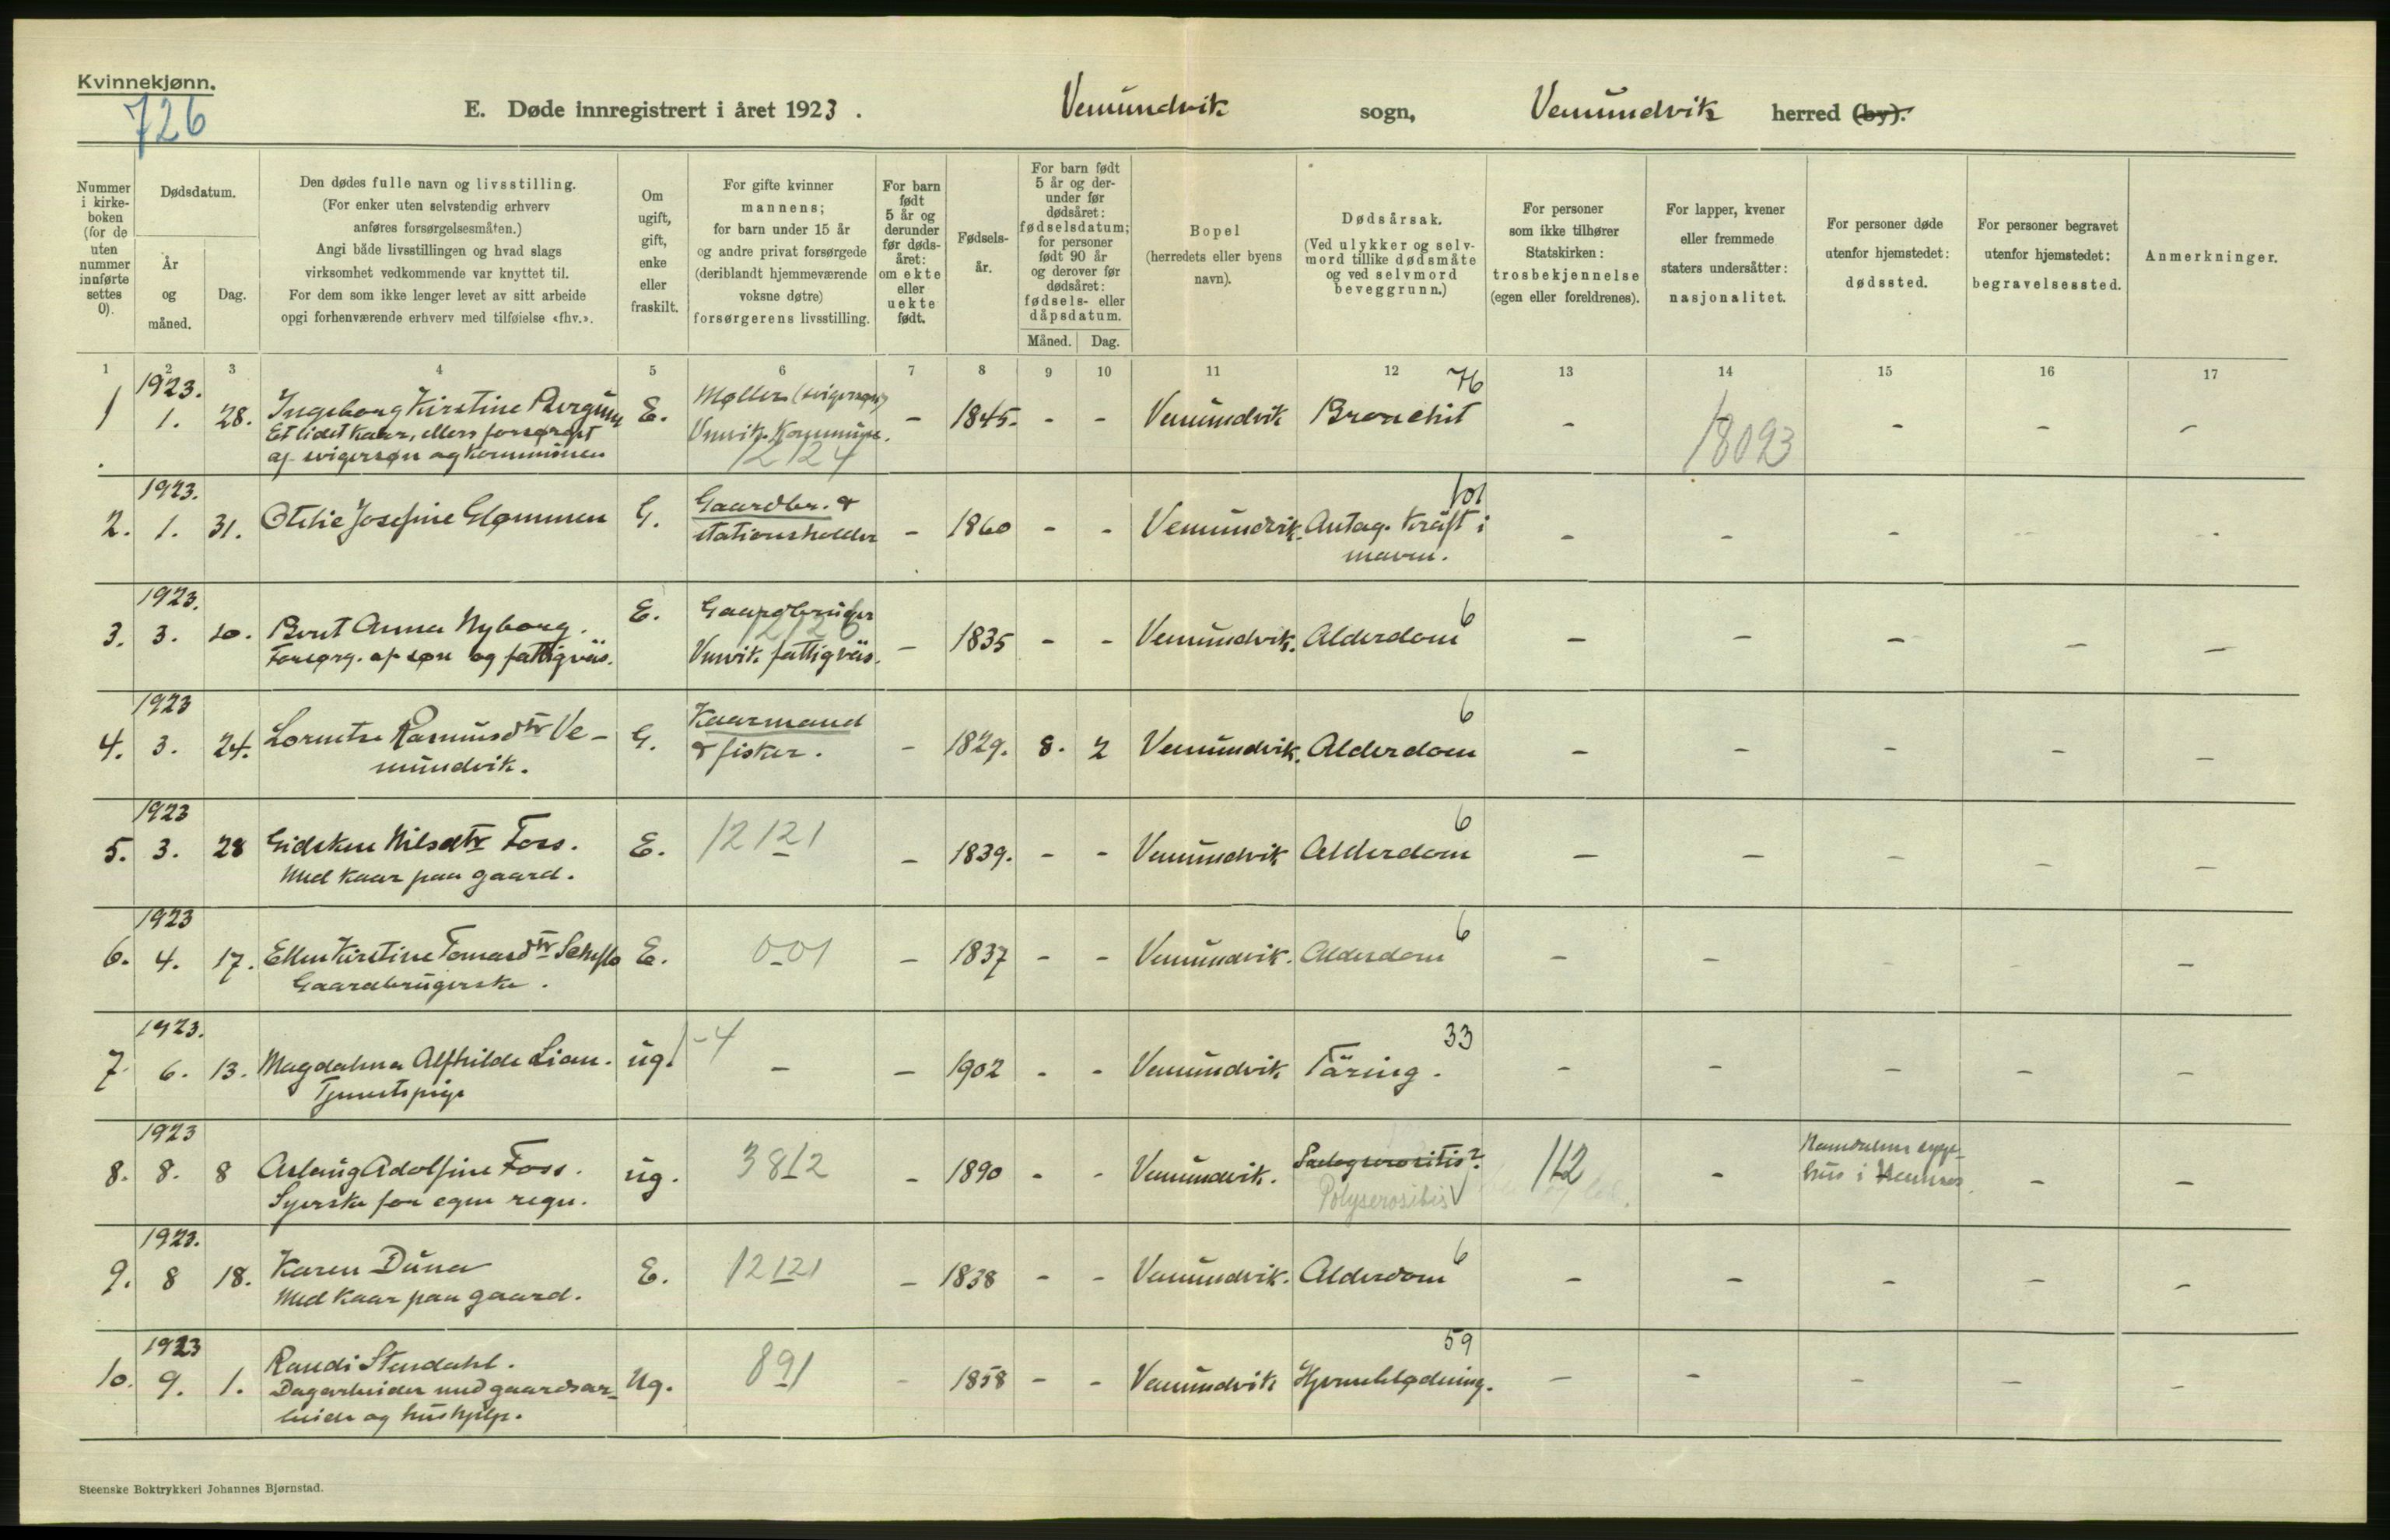 Kvinnekjønn.
726
E. Døde innregistrert i året 1923. Vemundvik sogn, Vemundvik herred (by).
Nummer i kirkeboken (for de uten nummer innførte settes 0).
Dødsdatum.
År og måned.
Dag.
Den dødes fulle navn og livsstilling.
(For enker uten selvstendig erhverv
anføres forsørgelsesmåten.)
Angi både livsstillingen og hvad slags
virksomhet vedkommende var knyttet til.
For dem som ikke lenger levet av sitt arbeide
opgi forhenværende erhverv med tilføielse «fhv.».
Om ugift, gift, enke eller fraskilt.
For gifte kvinner
mannens;
for barn under 15 år
og andre privat forsørgede
(deriblandt hjemmeværende
voksne døtre)
forsørgerens livsstilling.
For barn født 5 år og derunder før dødsåret: om ekte eller uekte født.
Fødselsår.
For barn født 5 år og derunder før dødsåret: fødselsdatum; for personer født 90 år og derover før dødsåret: fødsels- eller dåpsdatum.
Måned. Dag.
Bopel
(herredets eller byens
navn).
Dødsårsak.
(Ved ulykker og selvmord tillike dødsmåte og ved selvmord beveggrunn.)
For personer
som ikke tilhører
Statskirken:
trosbekjennelse
(egen eller foreldrenes).
For lapper, kvener
eller fremmede
staters undersåtter:
nasjonalitet.
For personer døde
utenfor hjemstedet:
dødssted.
For personer begravet
utenfor hjemstedet:
begravelsessted.
Anmerkninger.
1 2 3 4 5 6 7 8 9 10 11 12 13 14 15 16 17
1923. Møller (svigersøn) 76
1 1. 28. Ingeborg Kirstine Bergum E. Vmvik. Kommune. - 1845. - - Vemundvik Bronchit - 18093 - - -
Et lidet kaar, ellers forsørget
af svigersøn og kommunen 12124
1923. Gaardbr. & 101
2. 1. 31. Otelie Josefine Glømmen G. stationsholder - 1860 - - Vemundvik. Antag. Kräft i - - - - -
maven.
1923. Gaardbruger 6
12126
3. 3. 10. Berit Anna Nyborg. E. Vmvik fattigväs. - 1835 - - Vemundvik. Alderdom - - - - -
Forsørg. af søn og fattigväs.
1923 Kaarmand 6
4. 3. 24. Lorentse Rasmusdtr Ve- G. & fisker. - 1829. 8. 2 Vemundvik. Alderdom - - - - -
mundvik.
1923 6
5. 3. 28 Gidsken Nilsdtr Foss. E. 12121 - 1839. - - Vemundvik Alderdom - - - - -
Med kaar paa gaard.
1923 6
6. 4. 17. Ellen Kirstine Tomasdtr E. 001 - 1837 - - Vemundvik. Alderdom - - - - -
Gaardbrugerske.
1923. 1-4 33
7. 6. 13. Magdalena Alfhilde Lian. ug. - - 1902 - - Vemundvik Täring. - - - - -
Tjenestepige
1923
8. 8. 8 Aslaug Adolfine Foss. ug. 3812 - 1890 - - Vemundvik. 112 - Namdalens syge- - -
Syerske for egen regn. Polyserositis hus i Namsos.
1923. 6
9. 8 18. Karen Duna E. 12121 - 1838 - - Vemundvik. Alderdom - - - - -
Med kaar paa gaard.
1923 59
10. 9. 1. Randi Stendahl. Ug. 891 - 1858 - - Vemundvik Hjerneblødning. - - - - -
Dagarbeider med gaardsar-
beide og hushjelp.
Steenske Boktrykkeri Johannes Bjørnstad.